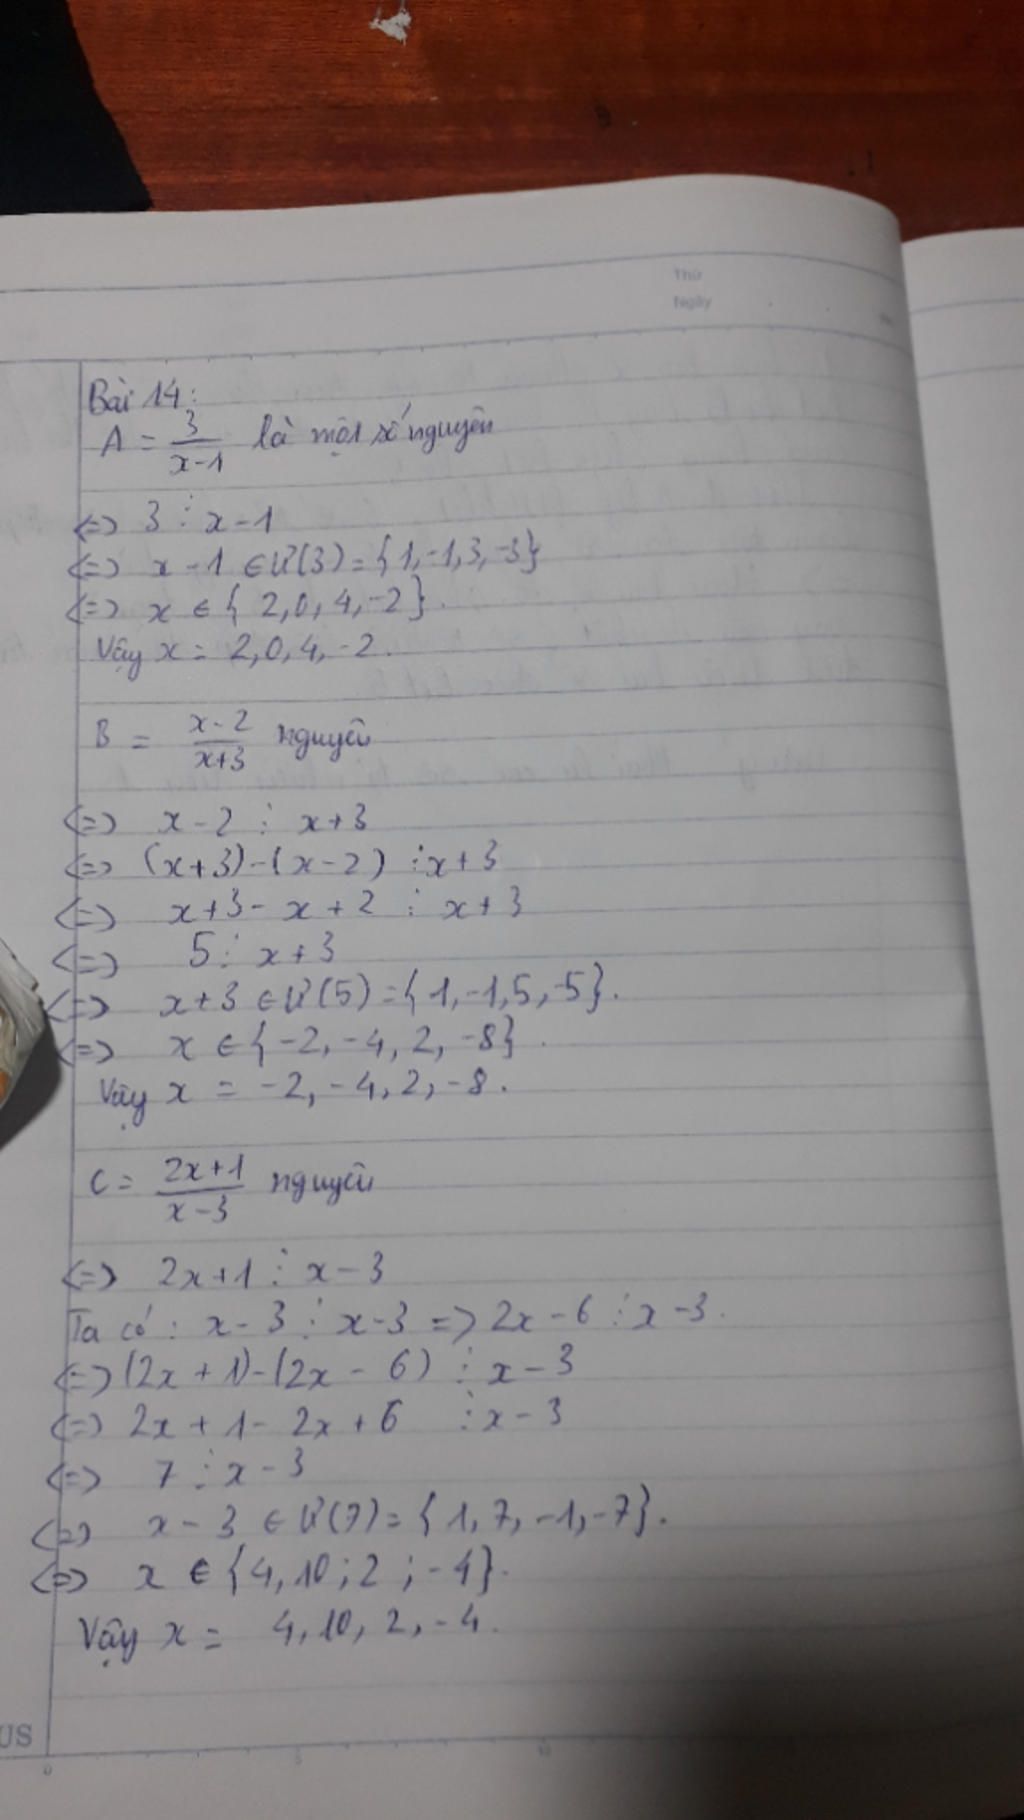 Thứ
Ngày
Bài 14:
A = 3/(x-1) là một số nguyên
<=> 3 ⋮ x-1
<=> x-1 ∈ Ư(3) = {1,-1,3,-3}
<=> x ∈ {2,0,4,-2}.
Vậy x = 2,0,4,-2.
B = (x-2)/(x+3) nguyên
<=> x-2 ⋮ x+3
<=> (x+3)-(x-2) ⋮ x+3
<=> x+3-x+2 ⋮ x+3
<=> 5 ⋮ x+3
<=> x+3 ∈ Ư(5) = {1,-1,5,-5}.
<=> x ∈ {-2,-4,2,-8}.
Vậy x = -2,-4,2,-8.
C = (2x+1)/(x-3) nguyên
<=> 2x+1 ⋮ x-3
Ta có: x-3 ⋮ x-3 => 2x-6 ⋮ x-3.
<=> (2x+1)-(2x-6) ⋮ x-3
<=> 2x+1-2x+6 ⋮ x-3
<=> 7 ⋮ x-3
<=> x-3 ∈ Ư(7) = {1,7,-1,-7}.
<=> x ∈ {4,10;2;-4}.
Vậy x = 4,10,2,-4.
US
0 5 10